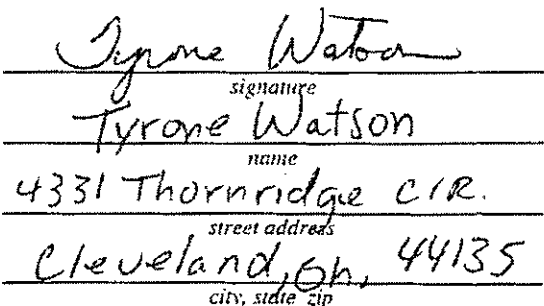 Tyrone Watson
signature
Tyrone Watson
name
4331 Thornridge CIR.
street address
Cleveland, Oh, 44135
city, state zip